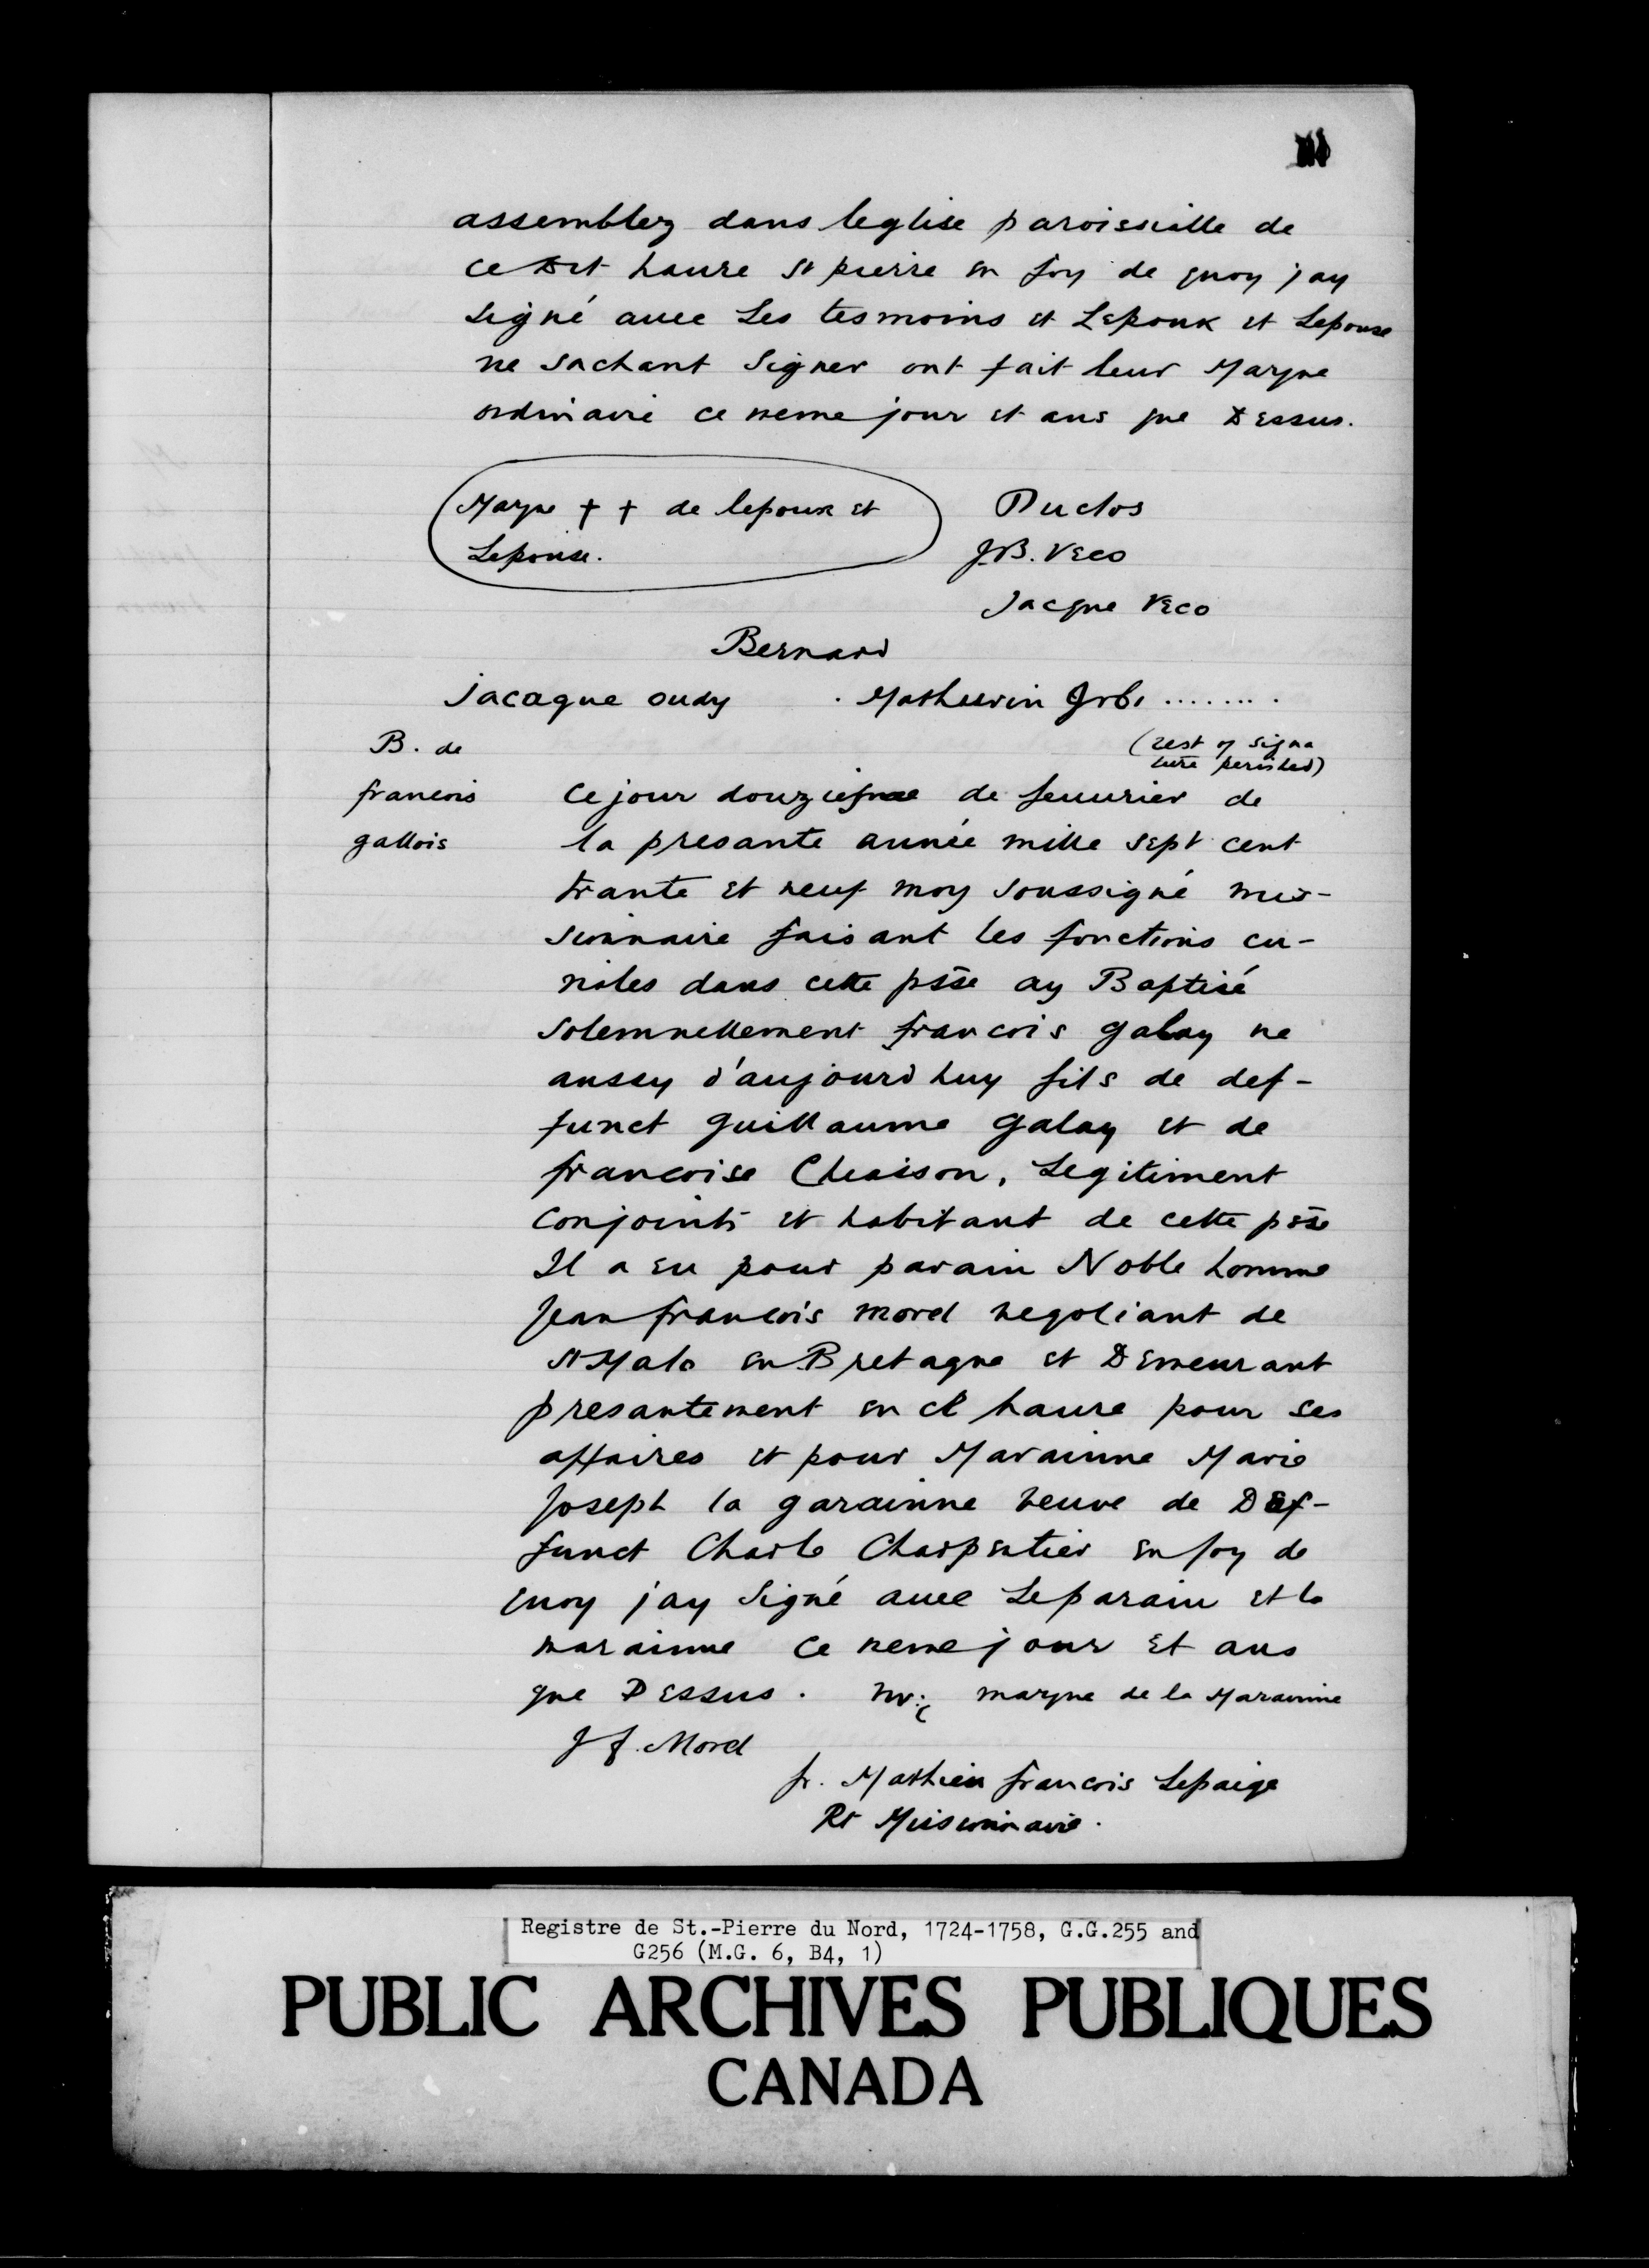 assemblez dans leglise paroissialle de
ce Dit haure st pierre en foy de quoy jay
signé auec Les tesmoins et Lepoux et Lepouse
ne sachant signer ont fait leur Marque
ordinaire ce meme jour et ans que Dessus.
Marque † † de lepoux et
Lepouse.
Duclos
J.B. Veco
Jacque Veco
Bernard
jacaque oudy . Mathurin Jrb. ........
(rest of signa
ture perished)
B. de
francois
gallois
ce jour douziesme de feuurier de
la presante année mille sept cent
trante et neuf moy soussigné mis-
sionnaire faisant les fonctions cu-
riales dans cette psse ay Baptisé
solemnellement francois galay ne
aussy d'aujourd huy fils de def-
funct guillaume galay et de
francoise Chaison, Legitiment
conjoints et habitant de cette psse
Il a eu pour parain Noble homme
Jean francois morel negotiant de
st Malo en Bretagne et Demeurant
presantement en ct haure pour ses
affaires et pour Marainne Marie
Joseph la garainne veuve de Def-
funct Charle Charpentier en foy de
quoy j'ay signé auec Leparain et la
marainne ce meme jour et ans
que Dessus. marque de la Marainne
J f. Morel
fr. Mathieu francois Lepaige
Rt Missionnaire.
Registre de St.-Pierre du Nord, 1724-1758, G.G.255 and
G256 (M.G. 6, B4, 1)
PUBLIC ARCHIVES PUBLIQUES
CANADA